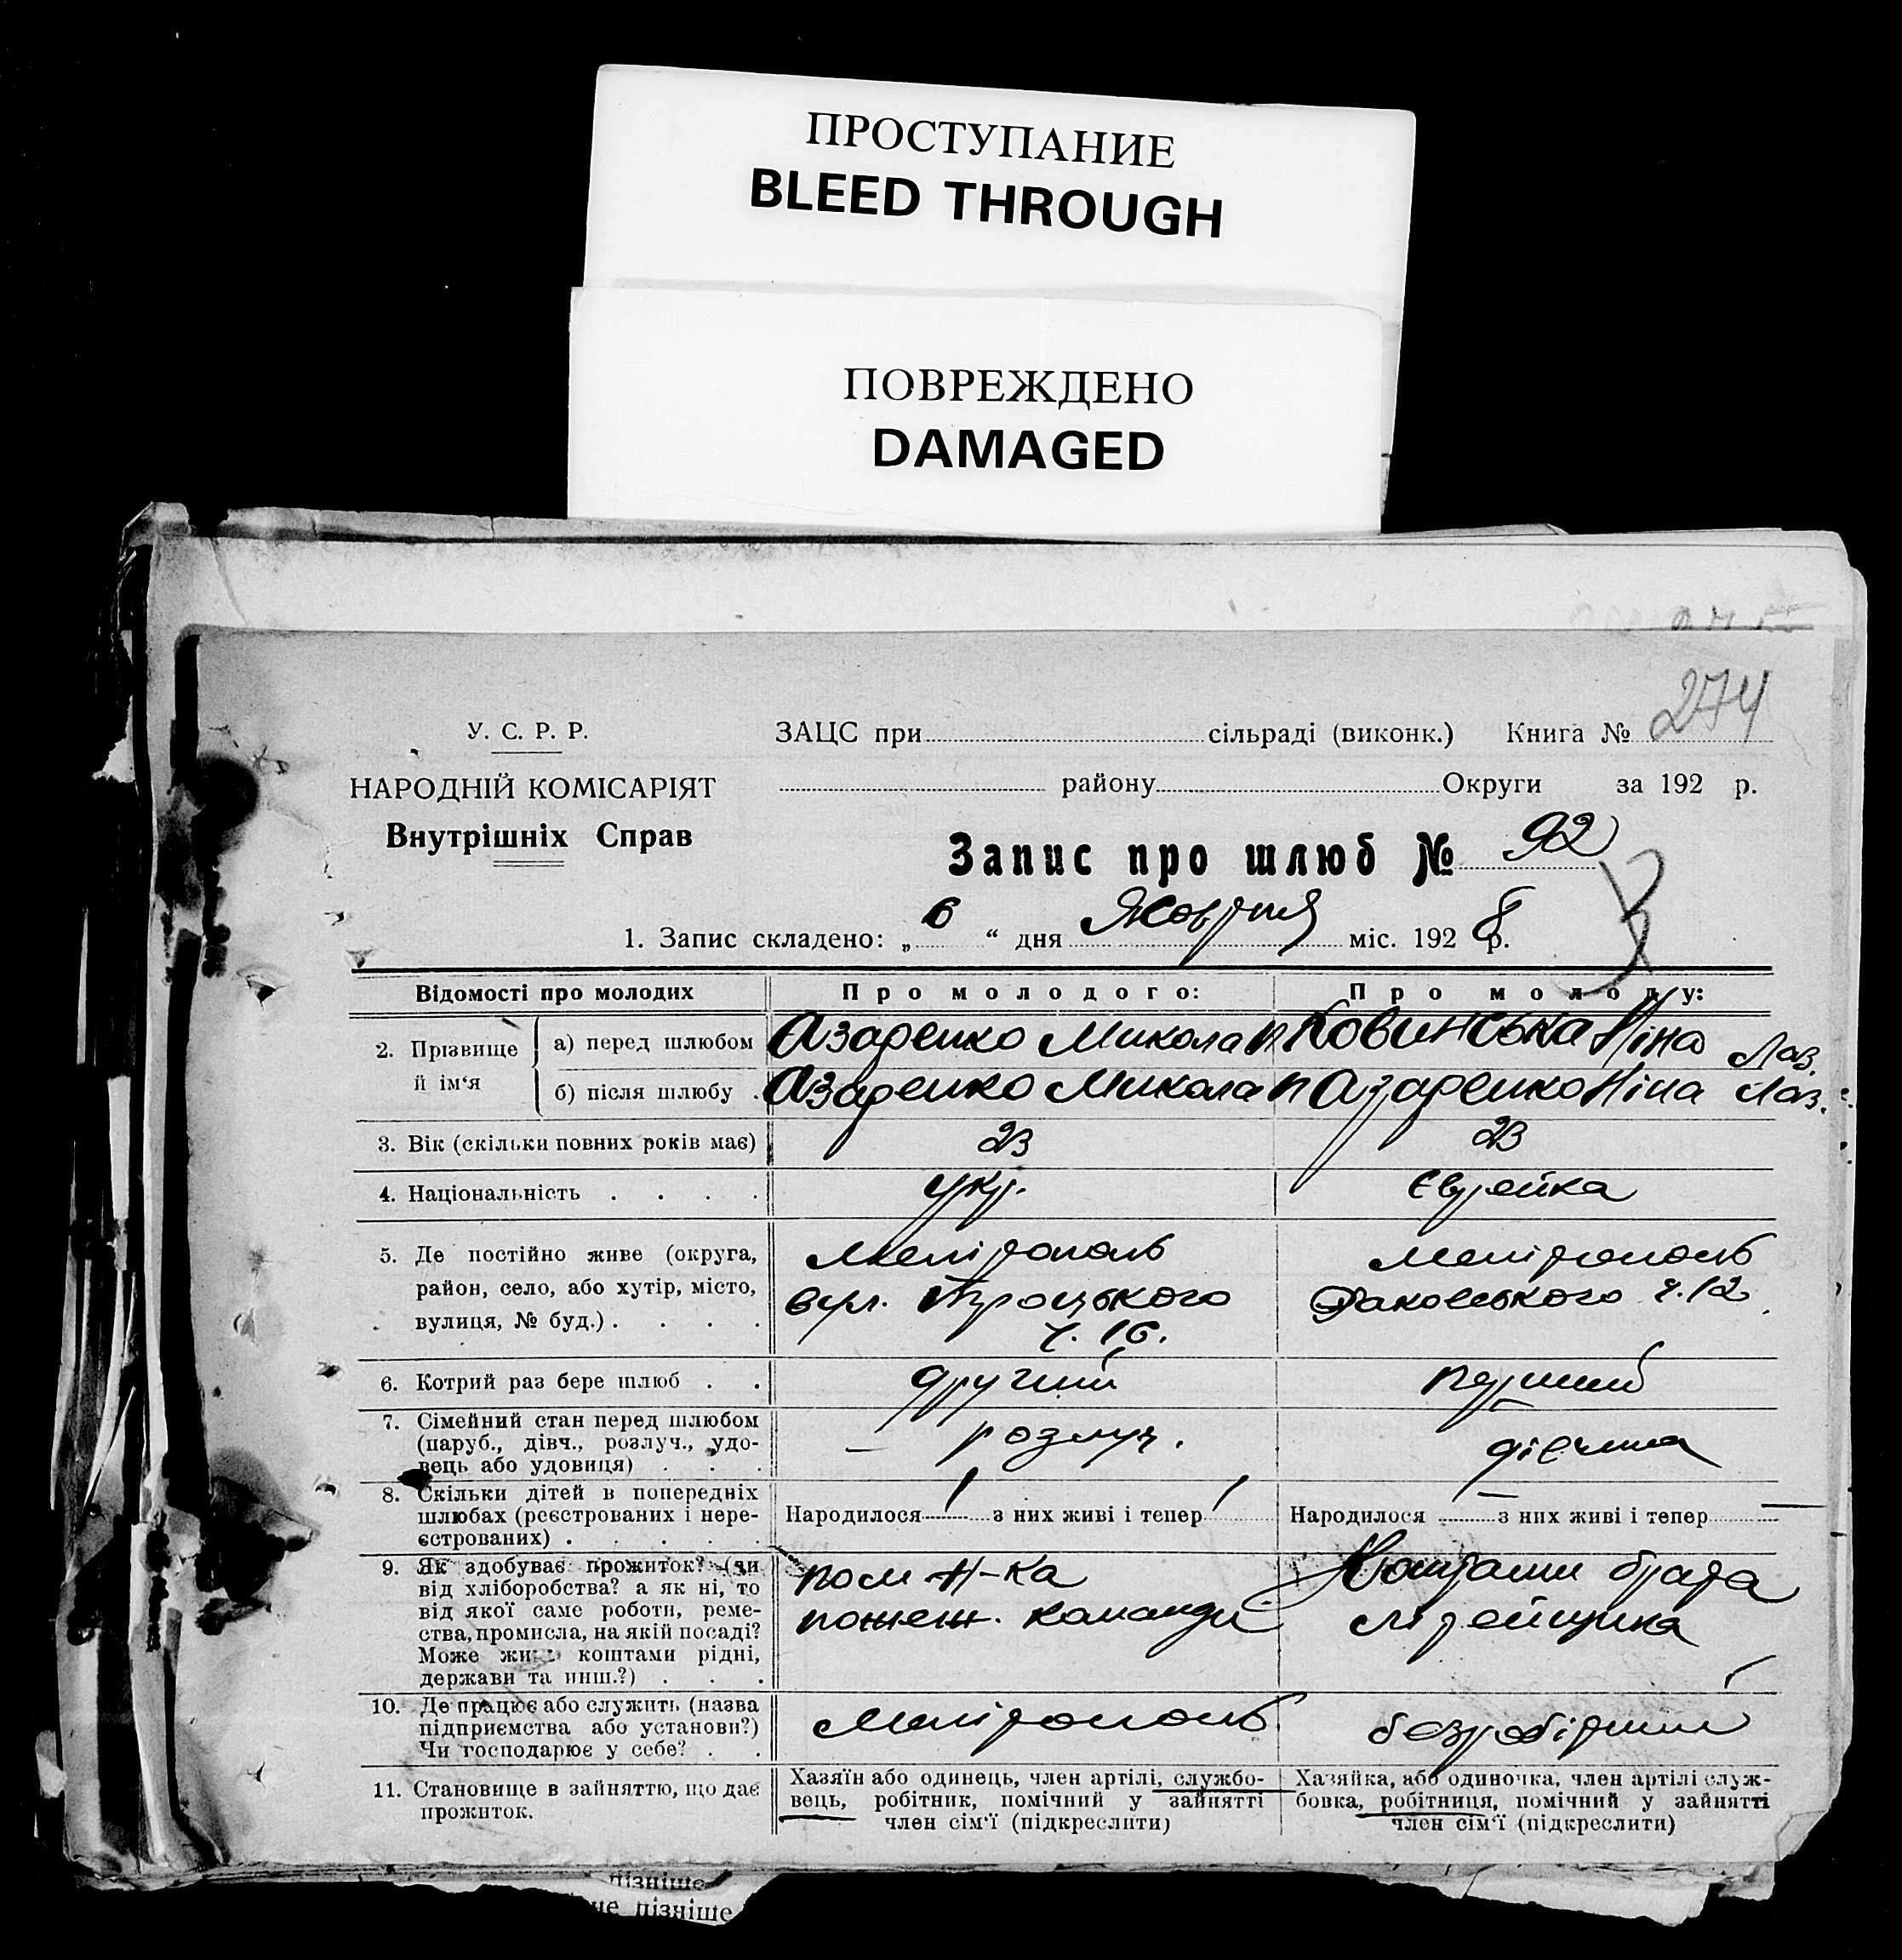 ПРОСТУПАНИЕ
BLEED THROUGH
ПОВРЕЖДЕНО
DAMAGED
274
У. С. Р. Р.
НАРОДНІЙ КОМІСАРІЯТ
Внутрішніх Справ
ЗАЦС при сільраді (виконк.) Книга №
району Округи за 192 р.
Запис про шлюб № 92
1. Запис складено: „ 6 “ дня Жовтня міс. 192 8 р.
Відомості про молодих Про молодого: Про молоду:
2. Прізвище й ім‘я
а) перед шлюбом Азаренко Микола П Ковинська Ніна Лаз.
б) після шлюбу Азаренко Микола П Азаренко Ніна Лаз.
3. Вік (скільки повних років має) 23 23
4. Національність . . . . укр. Єврейка
5. Де постійно живе (округа, Мелітополь Мелітополь
район, село, або хутір, місто, вул. Троцького Раковського ч. 12
вулиця, № буд.) . . . . ч. 16.
6. Котрий раз бере шлюб . . другий перший
7. Сімейний стан перед шлюбом
(паруб., дівч., розлуч., удо- розлуч. дівчина
вець або удовиця) . . .
8. Скільки дітей в попередніх
шлюбах (реєстрованих і нере- Народилося 1 з них живі і тепер 1 Народилося — з них живі і тепер —
єстрованих) . . . . .
9. Як здобуває прожиток? (чи
від хліборобства? а як ні, то пом н-ка Коштами брата
від якої саме роботи, реме- пожеж. команди
ства, промисла, на якій посаді?
Може живе коштами рідні,
держави та инш.?) . . .
10. Де працює або служить (назва
підприємства або установи?) Мелітополь безробітний
Чи господарює у себе? . .
11. Становище в зайняттю, що дає
прожиток.
Хазяїн або одинець, член артілі, службо-
вець, робітник, помічний у зайнятті
член сім‘ї (підкреслити)
Хазяйка, або одиночка, член артілі служ-
бовка, робітниця, помічний у зайнятті
член сім‘ї (підкреслити)
пізніше
не пізніше